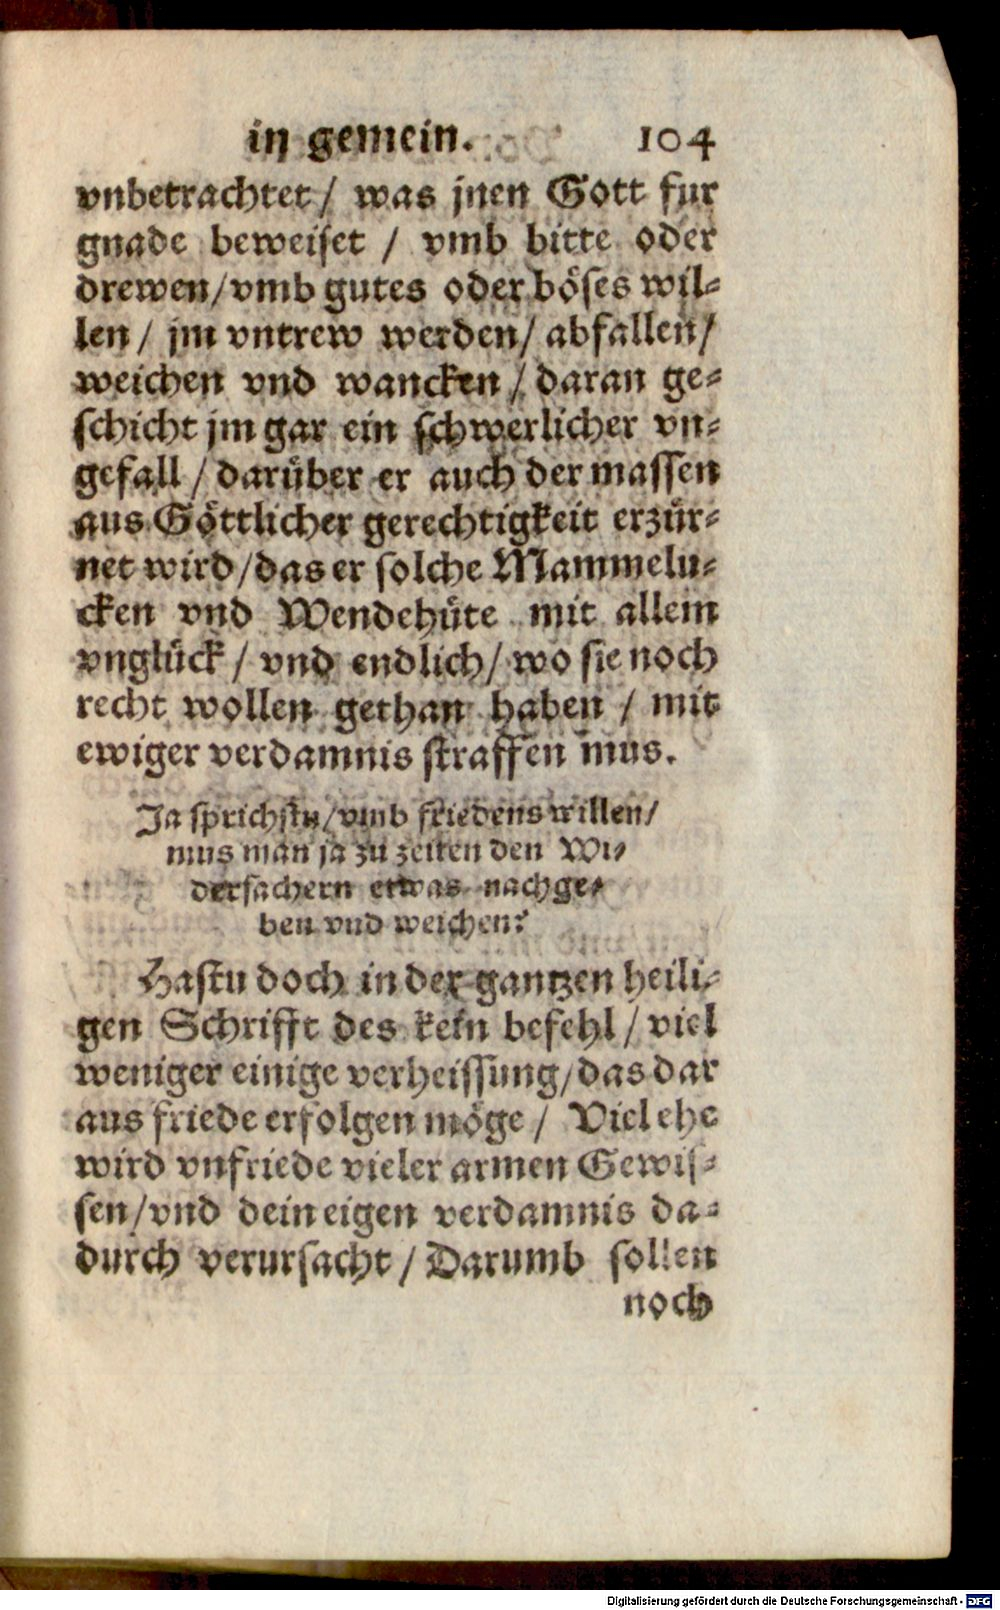 in gemein. 104
vnbetrachtet / was jnen Gott fur
gnade beweiset / vmb bitte oder
drewen/vmb gutes oder böses wil-
len / jm vntrew werden/ abfallen/
weichen vnd wancken / daran ge-
schicht jm gar ein schwerlicher vn-
gefall / darüber er auch der massen
aus Göttlicher gerechtigkeit erzür-
net wird/das er solche Mammelu-
cken vnd Wendehüte mit allem
vnglück / vnd endlich/ wo sie noch
recht wollen gethan haben / mit
ewiger verdamnis straffen mus.
Ja sprichstu/vmb friedens willen/
mus man ja zu zeiten den Wi-
dersachern etwas nachge-
ben vnd weichen?
Hastu doch in der gantzen heili-
gen Schrifft des kein befehl / viel
weniger einige verheissung/das dar
aus friede erfolgen möge / Viel ehe
wird vnfriede vieler armen Gewis-
sen/vnd dein eigen verdamnis da-
durch verursacht / Darumb sollen
noch
Digitalisierung gefördert durch die Deutsche Forschungsgemeinschaft - DFG